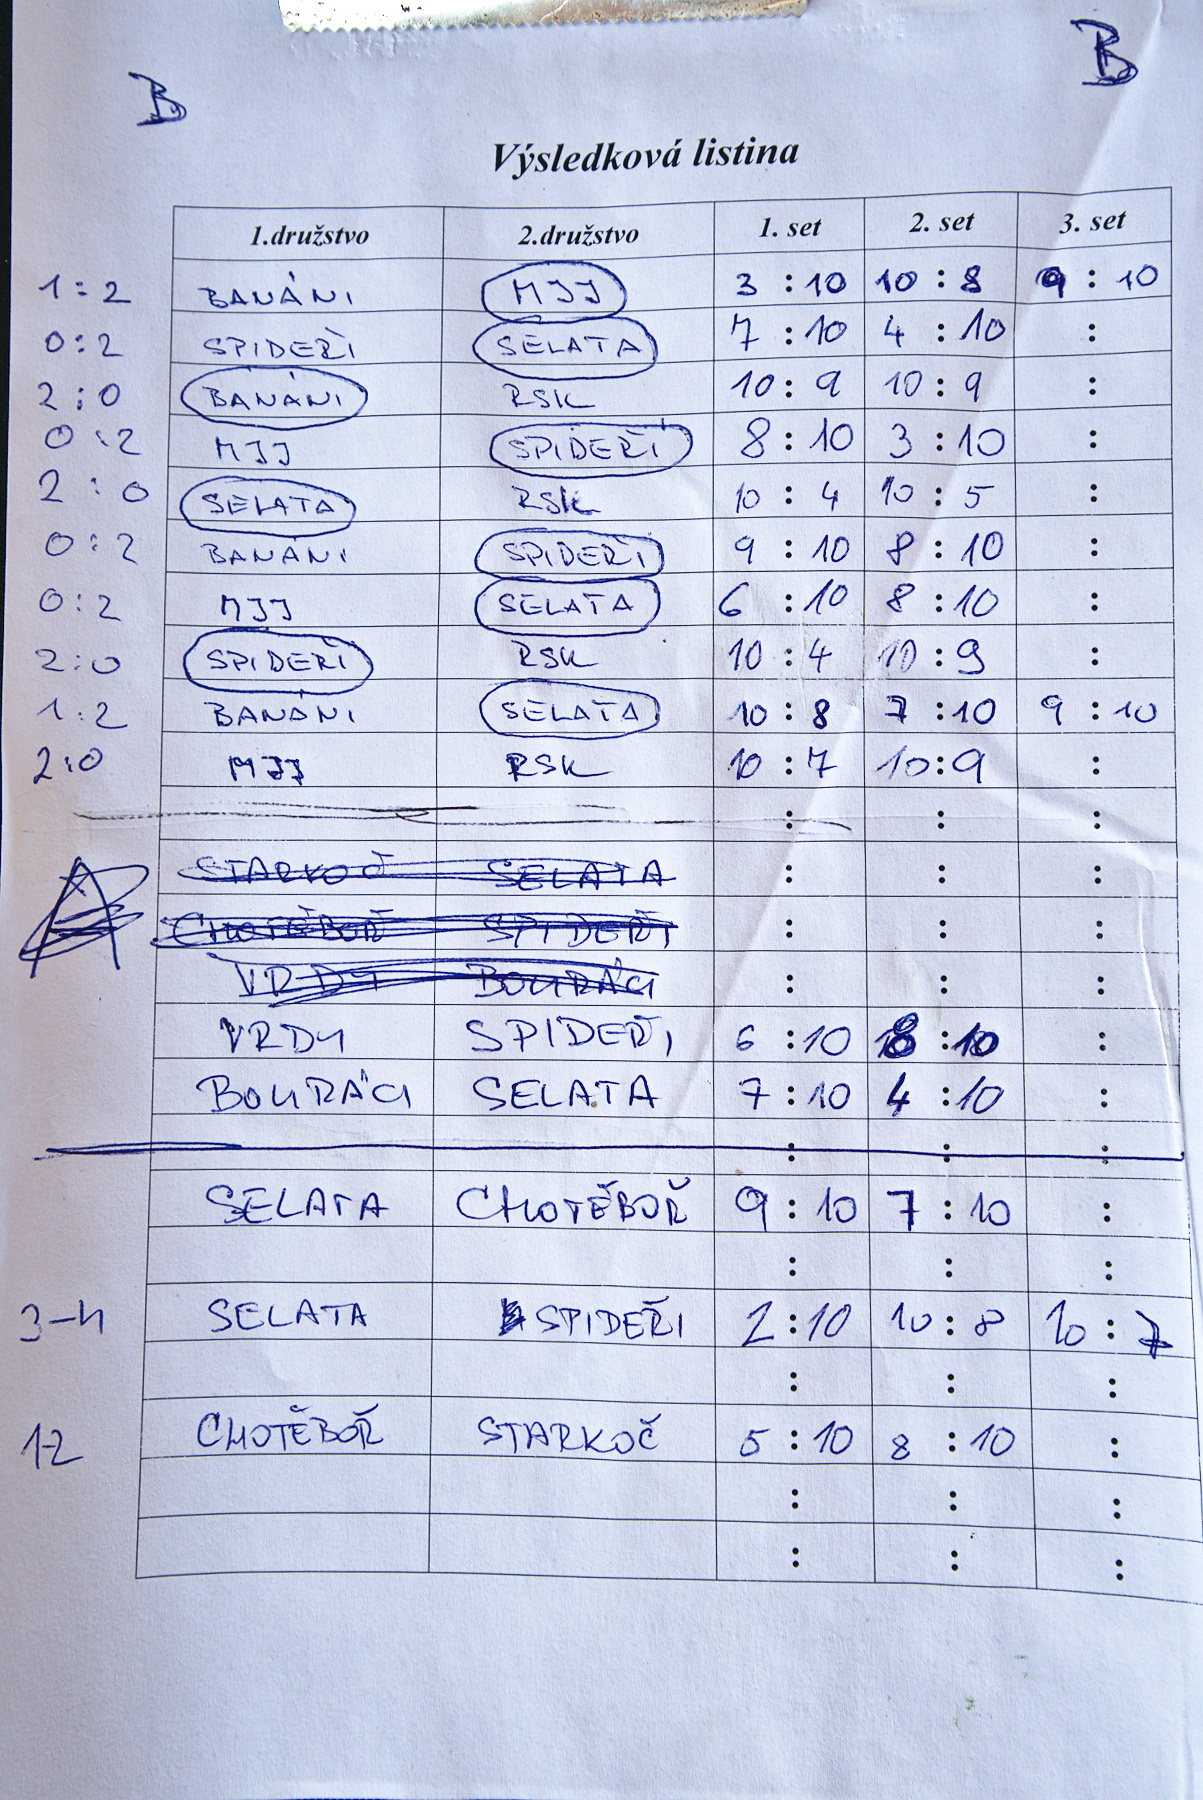 B B
Výsledková listina
1.družstvo 2.družstvo 1. set 2. set 3. set
1:2 BANÁNI MJJ 3 : 10 10 : 8 9 : 10
0:2 SPIDEŘI SELATA 7 : 10 4 : 10 :
2:0 BANÁNI RSK 10 : 9 10 : 9 :
0:2 MJJ SPIDEŘI 8 : 10 3 : 10 :
2:0 SELATA RSK 10 : 4 10 : 5 :
0:2 BANÁNI SPIDEŘI 9 : 10 8 : 10 :
0:2 MJJ SELATA 6 : 10 8 : 10 :
2:0 SPIDEŘI RSK 10 : 4 10 : 9 :
1:2 BANÁNI SELATA 10 : 8 7 : 10 9 : 10
2:0 MJJ RSK 10 : 7 10 : 9 :
: : :
A STARKOČ SELATA : : :
CHOTĚBOŘ SPIDEŘI : : :
VRDY BOURÁCI : : :
VRDY SPIDEŘI 6 : 10 8 : 10 :
BOURÁCI SELATA 7 : 10 4 : 10 :
: : :
SELATA CHOTĚBOŘ 9 : 10 7 : 10 :
: : :
3-4 SELATA SPIDEŘI 2 : 10 10 : 8 10 : 7
: : :
1-2 CHOTĚBOŘ STARKOČ 5 : 10 8 : 10 :
: : :
: : :